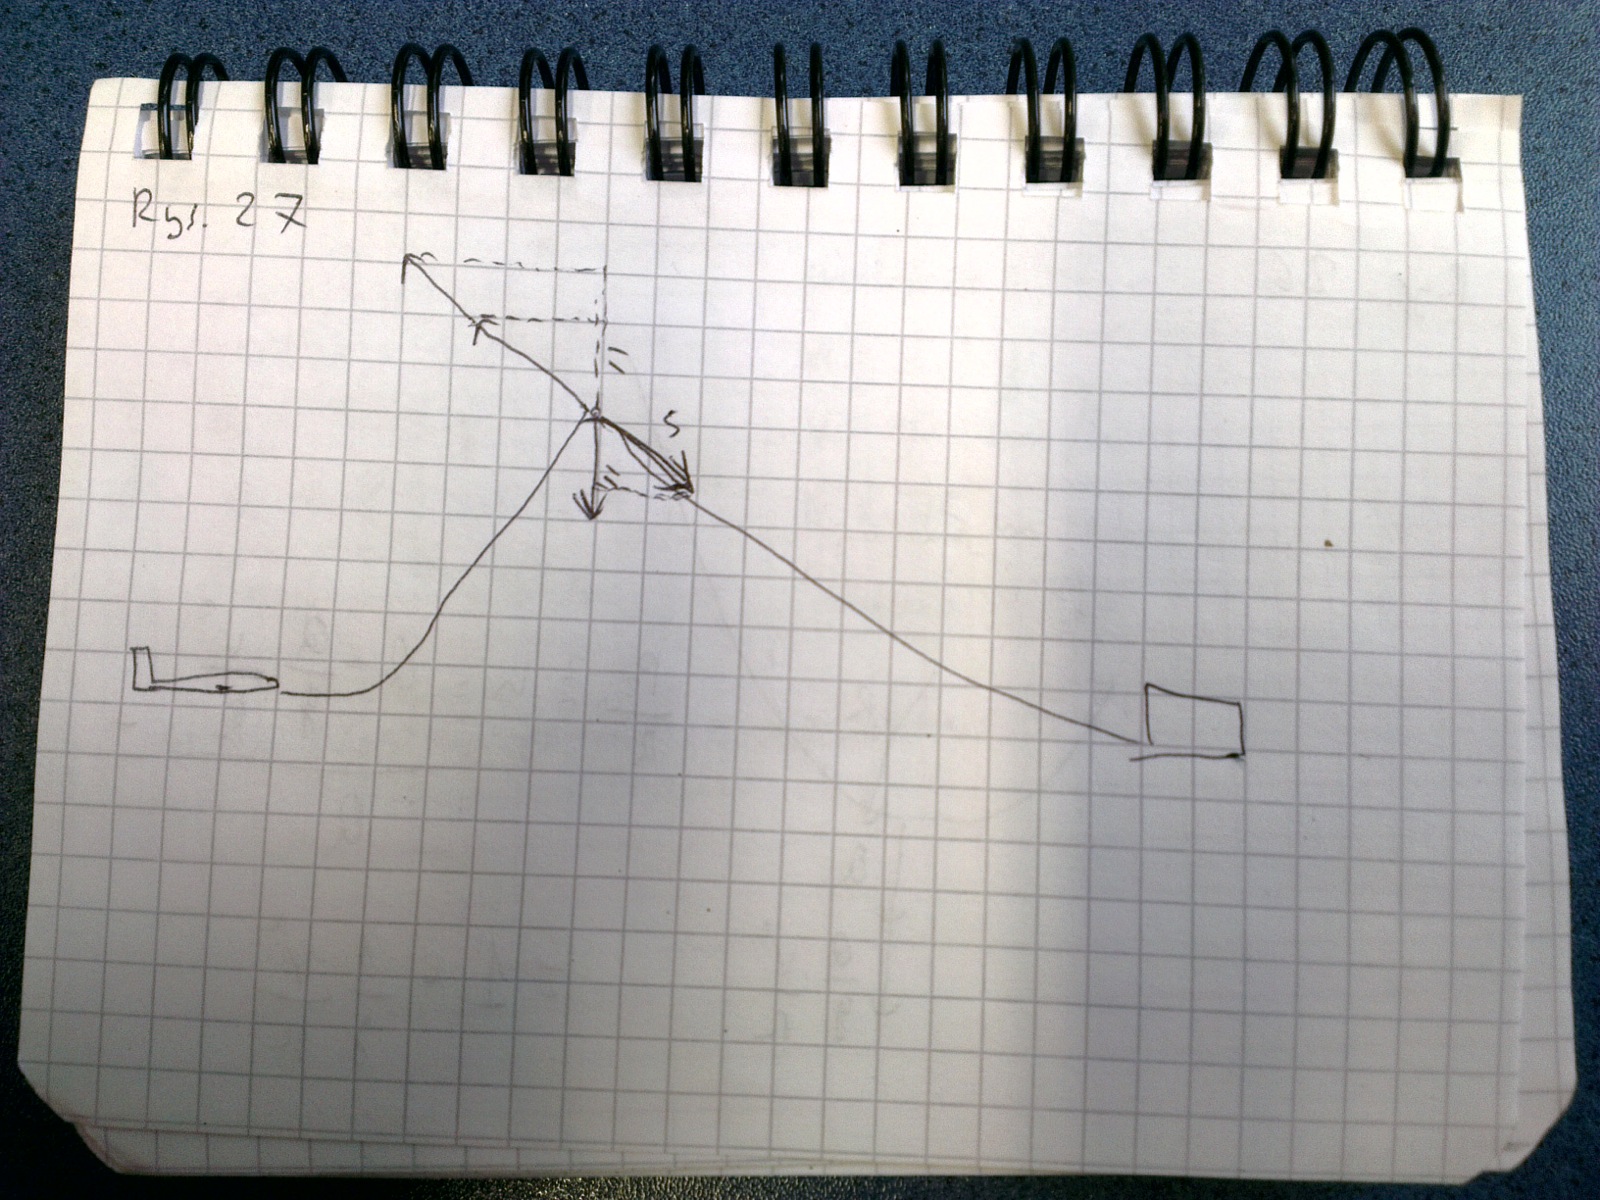 Rys. 27
s